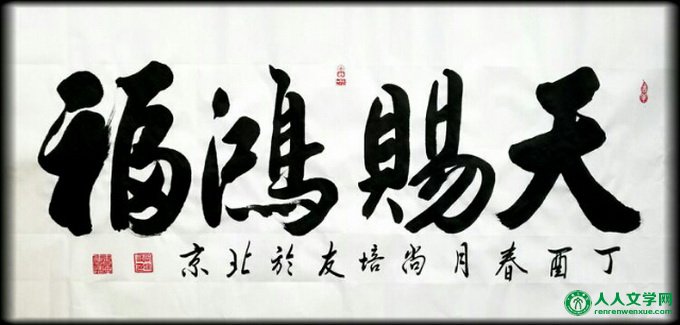 天賜鴻福
丁酉春月尚培友於北京
人人文学网
renrenwenxue.com